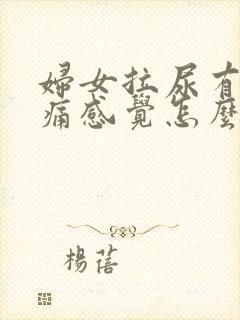 婦女拉尿有
痛感覺怎麼
楊蓓